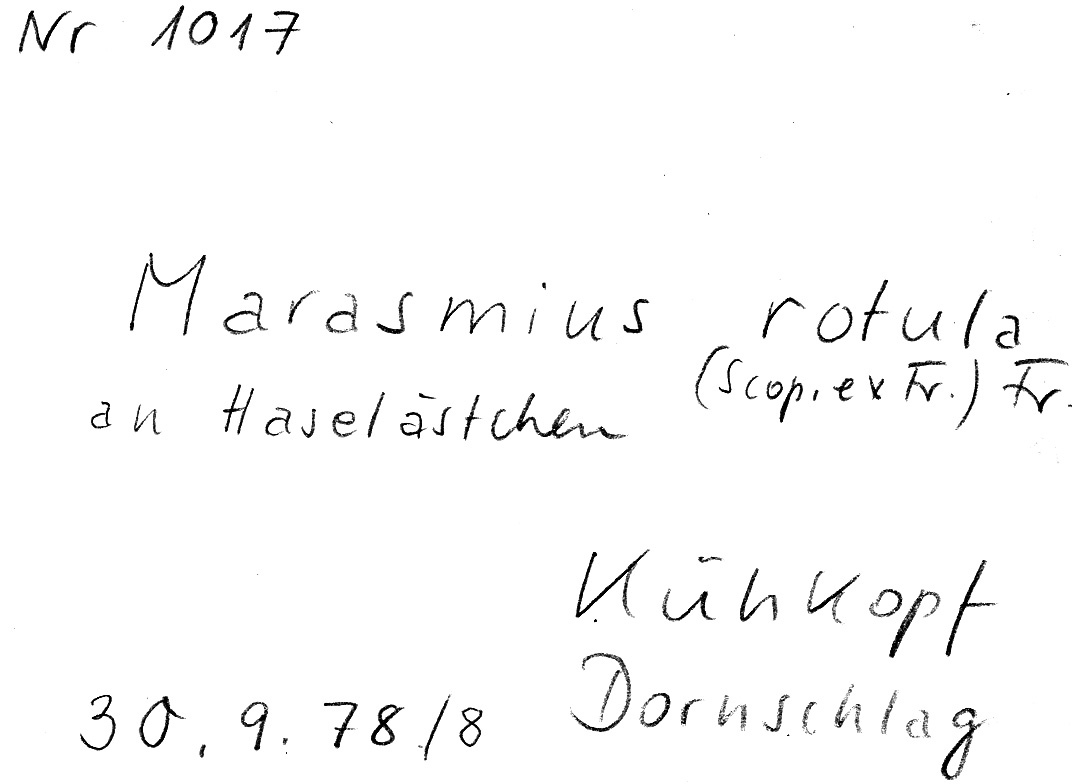 Nr 1017
Marasmius rotula
(Scop. ex Fr.) Fr.
an Haselästchen
Kühkopf
Dornschlag
30. 9. 78/8